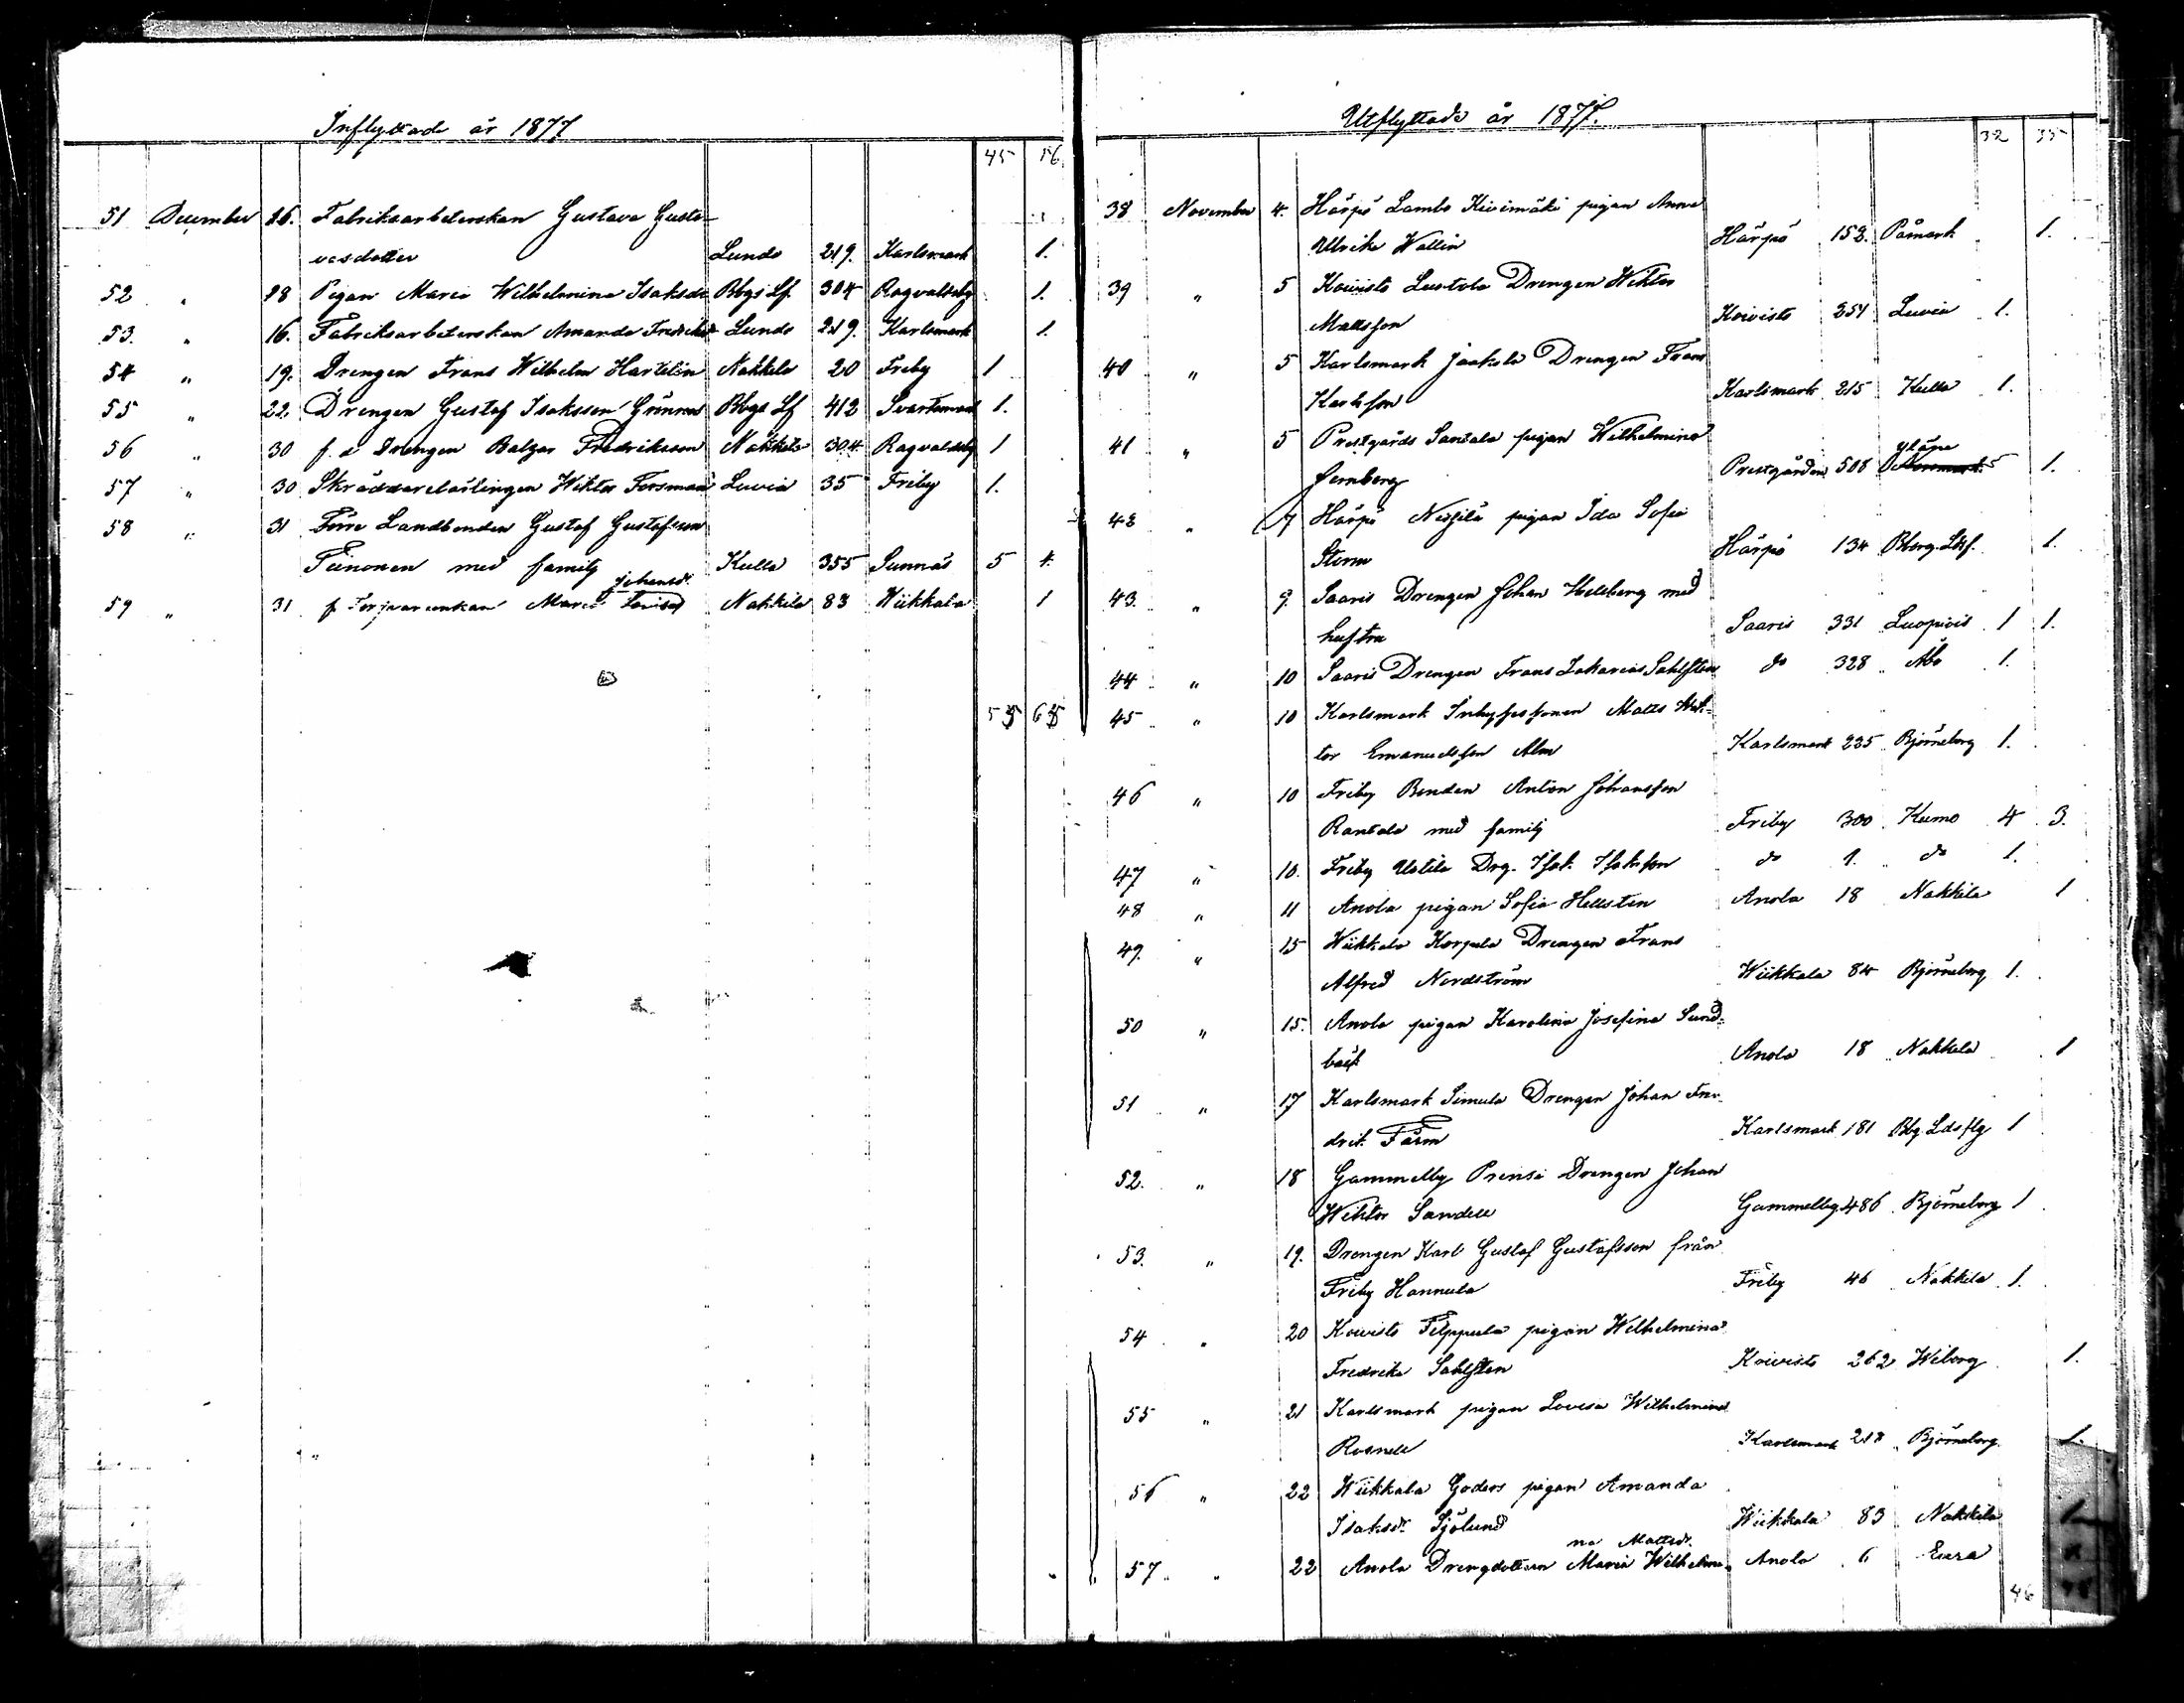 Inflyttade år 1877
45 56
51 December 26. Fabriksarbeterskan Gustava Gusta-
vasdotter Lunds 219. Karlsmark 1.
52 " 28 Pigan Maria Wilhelmina Isaksdr Bbgs Lf. 304 Ragvaldsby 1.
53. " 16. Fabriksarbeterskan Amanda Fredriksd Lunds 219. Karlsmark 1.
54 " 19. Drengen Frans Wilhelm Hartelin Nakkila 20 Friby 1
55 " 22. Drengen Gustaf Isaksson Grönroos Bbgs Lf 412 Svartsmark 1.
56 " 30 f. d Drengen Balzar Fredriksson Nakkila 304 Ragvaldsby 1
57 " 30 Skräddarelärlingen Wiktor Forsman Luvia 35 Friby 1.
58 " 31 Förre Landbonden Gustaf Gustafsson
Teinonen med familj Kulla 355 Sunnäs 5 4.
Johansdr
59 " 31 f. Maria Nakkila 83 Wiikkala 1
55 65
Utflyttade år 1877.
32 35
38 November 4. Härpö Lambo Kivimäki pigan Anna
Ulrika Wallin Härpö 152. Påmark 1.
39 " 5 Koivisto Luotola Drengen Wiktor
Mattsson Koivisto 251 Luvia 1.
40 " 5 Karlsmark Jaakola Drengen Frans
Karlsson Karlsmark 215 Kulla 1.
41 " 5 Prestgårds Santala pigan Wilhelmina
Yläne
Fernberg Prestgården 508 1.
42 " 7 Härpö Nissilä pigan Ida Sofia
Storm Härpö 134 Bborg. Ldsf. 1.
43. " 9. Saaris Drengen Johan Hellberg med
hustru Saaris 331 Luopiois 1 1.
44 " 10 Saaris Drengen Frans Zakarias Sahlsten do 328 Åbo 1.
45 " 10 Karlsmark Inhysespersonen Matts Wik-
tor Emanuelsson Alm Karlsmark 225 Björneborg 1.
46 " 10 Friby Bonden Anton Johansson
Rantala med familj Friby 300 Kumo 4 3.
47 " 10. Friby Uotila Drg. Isak Isaksson do 1. do 1.
48 " 11 Anola pigan Sofia Hellsten Anola 18 Nakkila 1
49. " 15 Wiikkala Korpela Drengen Frans
Alfred Nordström Wiikkala 84 Björneborg 1.
50 " 15. Anola pigan Karolina Josefina Sund-
bäck Anola 18 Nakkila 1
51 " 17 Karlsmark Simula Drengen Johan Fre-
drik Färm Karlsmark 181 Bbg. Ldsflg 1
52. " 18 Gammelby Prensi Drengen Johan
Wiktor Sandell Gammelby 486 Björneborg 1
53. " 19. Drengen Karl Gustaf Gustafsson från
Friby Hannula Friby 46 Nakkila 1.
54 " 20 Koivisto Filppula pigan Wilhelmina
Fredrika Sahlsten Koivisto 262 Wiborg 1.
55 " 21 Karlsmark pigan Lovisa Wilhelmina
Rosnell Karlsmark 217 Björneborg 1.
56 " 22 Wiikkala Goders pigan Amanda
Isaksdr Sjölund Wiikkala 83 Nakkila 1
na Mattsdr.
57 " 22 Anola Drengdottern Maria Wilhelmi- Anola 6 Eura
46